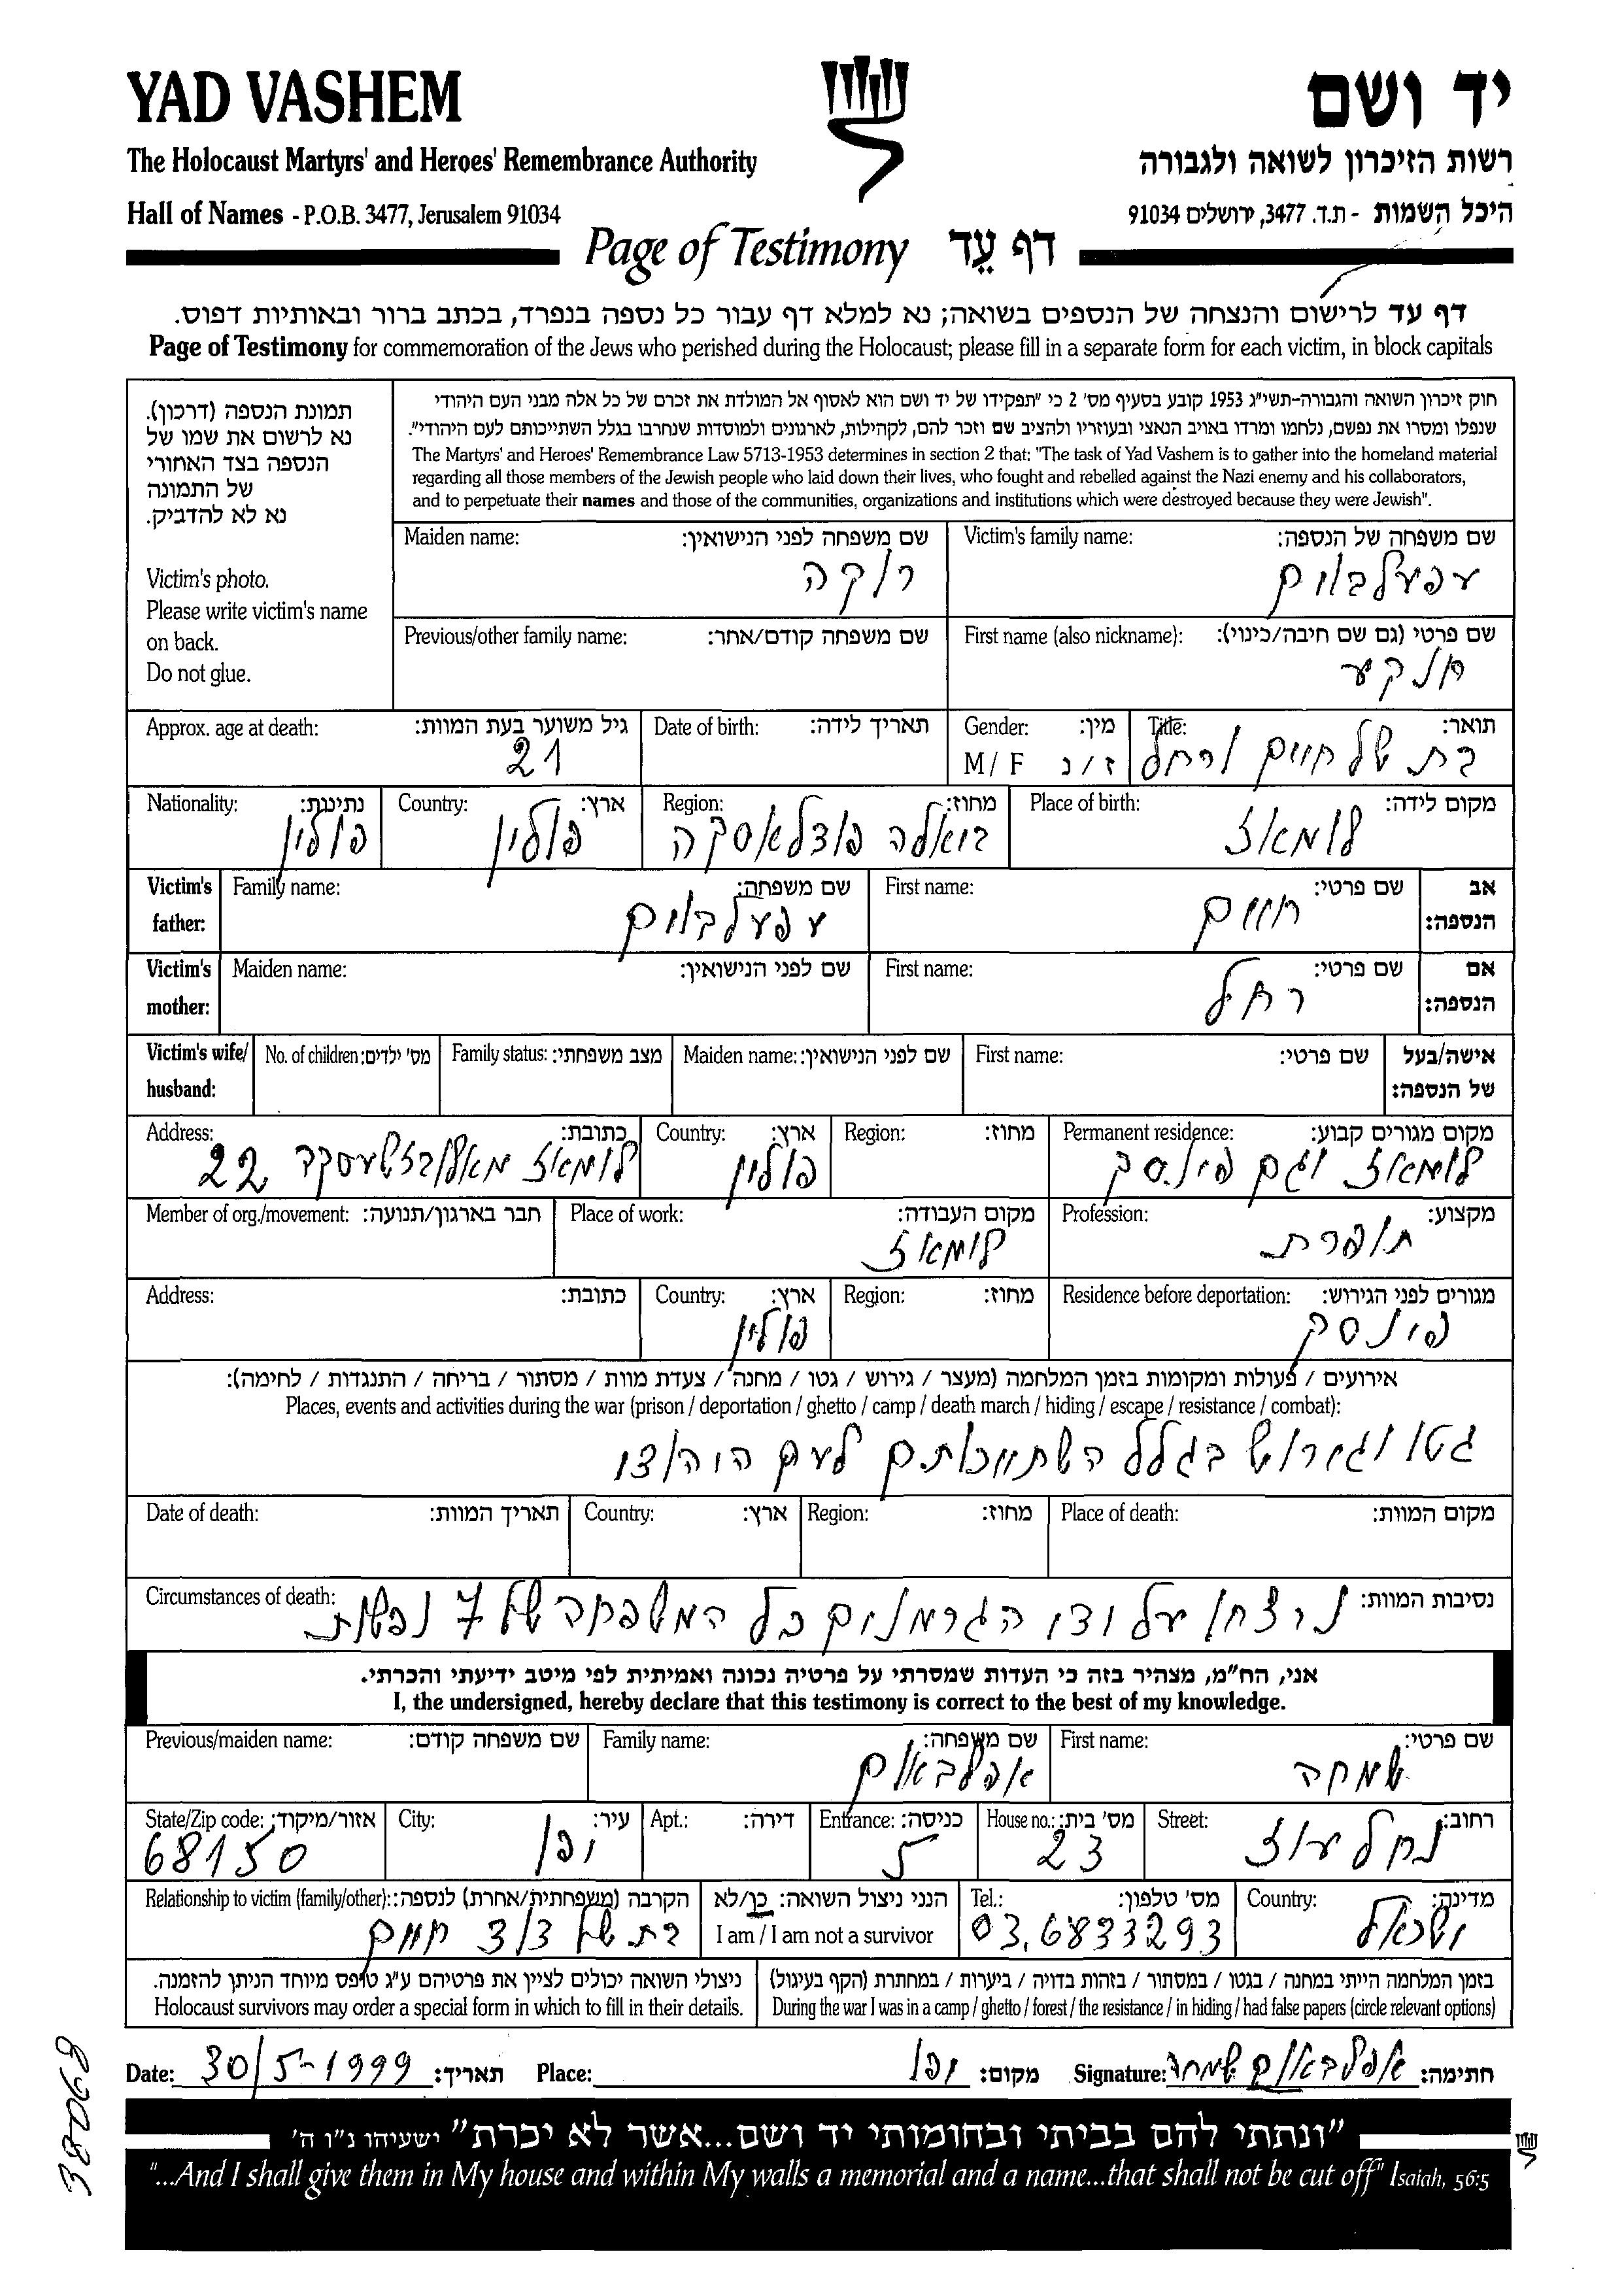 YAD VASHEM
יד ושם
The Holocaust Martyrs' and Heroes' Remembrance Authority
רשות הזיכרון לשואה ולגבורה
Hall of Names - P.O.B. 3477, Jerusalem 91034
היכל השמות - ת.ד. 3477, ירושלים 91034
Page of Testimony דף עֵד
דף עד לרישום והנצחה של הנספים בשואה; נא למלא דף עבור כל נספה בנפרד, בכתב ברור ובאותיות דפוס.
Page of Testimony for commemoration of the Jews who perished during the Holocaust; please fill in a separate form for each victim, in block capitals
תמונת הנספה (דרכון).
נא לרשום את שמו של
הנספה בצד האחורי
של התמונה
נא לא להדביק.
Victim's photo.
Please write victim's name
on back.
Do not glue.
חוק זיכרון השואה והגבורה-תשי"ג 1953 קובע בסעיף מס' 2 כי "תפקידו של יד ושם הוא לאסוף אל המולדת את זכרם של כל אלה מבני העם היהודי
שנפלו ומסרו את נפשם, נלחמו ומרדו באויב הנאצי ובעוזריו ולהציב שם וזכר להם, לקהילות, לארגונים ולמוסדות שנחרבו בגלל השתייכותם לעם היהודי".
The Martyrs' and Heroes' Remembrance Law 5713-1953 determines in section 2 that: "The task of Yad Vashem is to gather into the homeland material
regarding all those members of the Jewish people who laid down their lives, who fought and rebelled against the Nazi enemy and his collaborators,
and to perpetuate their names and those of the communities, organizations and institutions which were destroyed because they were Jewish".
Victim's family name: שם משפחה של הנספה:
עפעלבוים
Maiden name: שם משפחה לפני הנישואין:
רוקה
First name (also nickname): שם פרטי (גם שם חיבה/כינוי):
חנקע
Previous/other family name: שם משפחה קודם/אחר:
Title: תואר:
בת של חיים ורחל
Gender: מין:
M / F ז / נ
Date of birth: תאריך לידה:
Approx. age at death: גיל משוער בעת המוות:
21
Place of birth: מקום לידה:
לומאז
Region: מחוז:
ביאלה פודלאסקה
Country: ארץ:
פולין
Nationality: נתינות:
פולין
Victim's father: אב הנספה:
First name: שם פרטי:
חיים
Family name: שם משפחה:
עפעלבוים
Victim's mother: אם הנספה:
First name: שם פרטי:
רחל
Maiden name: שם לפני הנישואין:
Victim's wife/ husband: אישה/בעל של הנספה:
First name: שם פרטי:
Maiden name: שם לפני הנישואין:
Family status: מצב משפחתי:
No. of children: מס' ילדים:
Permanent residence: מקום מגורים קבוע:
לומאז וגם פינסק
Region: מחוז:
Country: ארץ:
פולין
Address: כתובת:
לומאז 22
Profession: מקצוע:
תופרת
Place of work: מקום העבודה:
לומאז
Member of org./movement: חבר בארגון/תנועה:
Residence before deportation: מגורים לפני הגירוש:
פינסק
Region: מחוז:
Country: ארץ:
פולין
Address: כתובת:
אירועים / פעולות ומקומות בזמן המלחמה (מעצר / גירוש / גטו / מחנה / צעדת מוות / מסתור / בריחה / התנגדות / לחימה):
Places, events and activities during the war (prison / deportation / ghetto / camp / death march / hiding / escape / resistance / combat):
גטו וגירוש בגלל השתייכותם לעם היהודי
Place of death: מקום המוות:
Region: מחוז:
Country: ארץ:
Date of death: תאריך המוות:
Circumstances of death: נסיבות המוות:
נרצחו על ידי הגרמנים כל המשפחה של 7 נפשות
אני, הח"מ, מצהיר בזה כי העדות שמסרתי על פרטיה נכונה ואמיתית לפי מיטב ידיעתי והכרתי.
I, the undersigned, hereby declare that this testimony is correct to the best of my knowledge.
First name: שם פרטי:
שמחה
Family name: שם משפחה:
אפלבאום
Previous/maiden name: שם משפחה קודם:
Street: רחוב:
נחל עוז
House no.: מס' בית:
23
Entrance: כניסה:
5
Apt.: דירה:
City: עיר:
יפו
State/Zip code: אזור/מיקוד:
68150
Country: מדינה:
ישראל
Tel.: מס' טלפון:
03.6833293
הנני ניצול השואה: כן/לא
I am / I am not a survivor
Relationship to victim (family/other): הקרבה (משפחתית/אחרת) לנספה:
בת של דוד חיים
בזמן המלחמה הייתי במחנה / בגטו / במסתור / בזהות בדויה / ביערות / במחתרת (הקף בעיגול)
During the war I was in a camp / ghetto / forest / the resistance / in hiding / had false papers (circle relevant options)
ניצולי השואה יכולים לציין את פרטיהם ע"ג טופס מיוחד הניתן להזמנה.
Holocaust survivors may order a special form in which to fill in their details.
Date: 30/5-1999 תאריך: Place: יפו מקום: Signature: אפלבאום שמחה חתימה:
"ונתתי להם בביתי ובחומותי יד ושם...אשר לא יכרת" ישעיהו נ"ו ה'
"...And I shall give them in My house and within My walls a memorial and a name...that shall not be cut off" Isaiah, 56:5